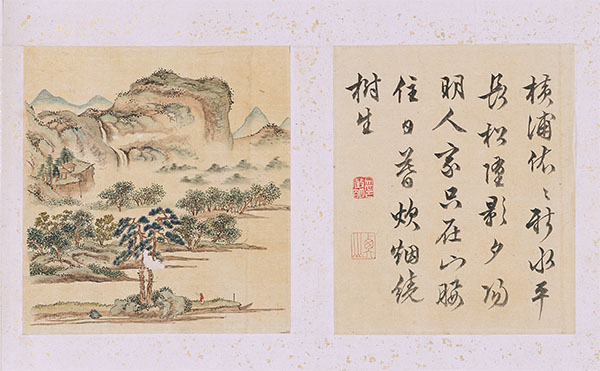 横浦依〻新水平
長松墮影夕陽
明人家只在山腰
住日暮炊烟繞
樹生